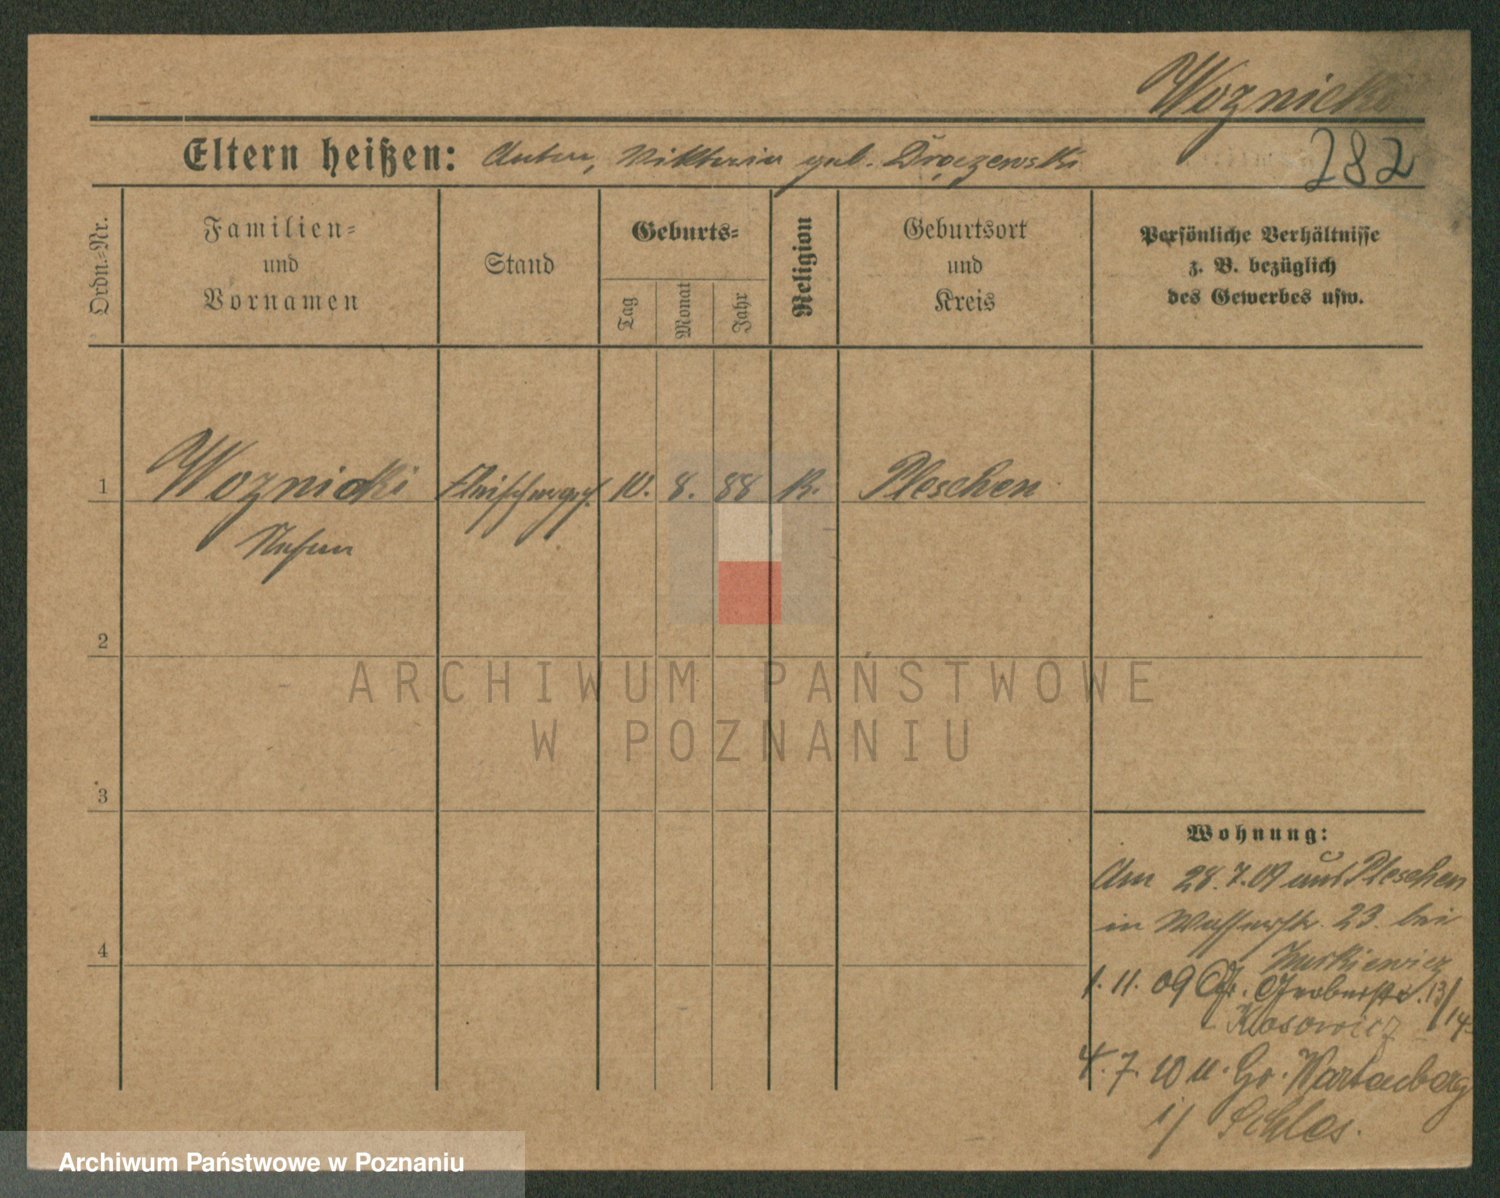 Woznicki
282
Eltern heißen: Anton, Viktoria geb. Droczewski
Ordn.-Nr.
Familien-
und
Vornamen
Stand
Geburts-
Tag
Monat
Jahr
Religion
Geburtsort
und
Kreis
Persönliche Verhältnisse
z. B. bezüglich
des Gewerbes usw.
1 Woznicki Fleischerges. 10. 8. 88 K. Pleschen
2
3
4
Wohnung:
Am 28.7.09 aus Pleschen
in Wasserstr. 23. bei
1. 11. 09 Gr. Gerberstr. 13/14
Kosowicz
4. 7. 10 n. Gr. Wartenberg
i/ Schles.
ARCHIWUM PAŃSTWOWE
W POZNANIU
Archiwum Państwowe w Poznaniu